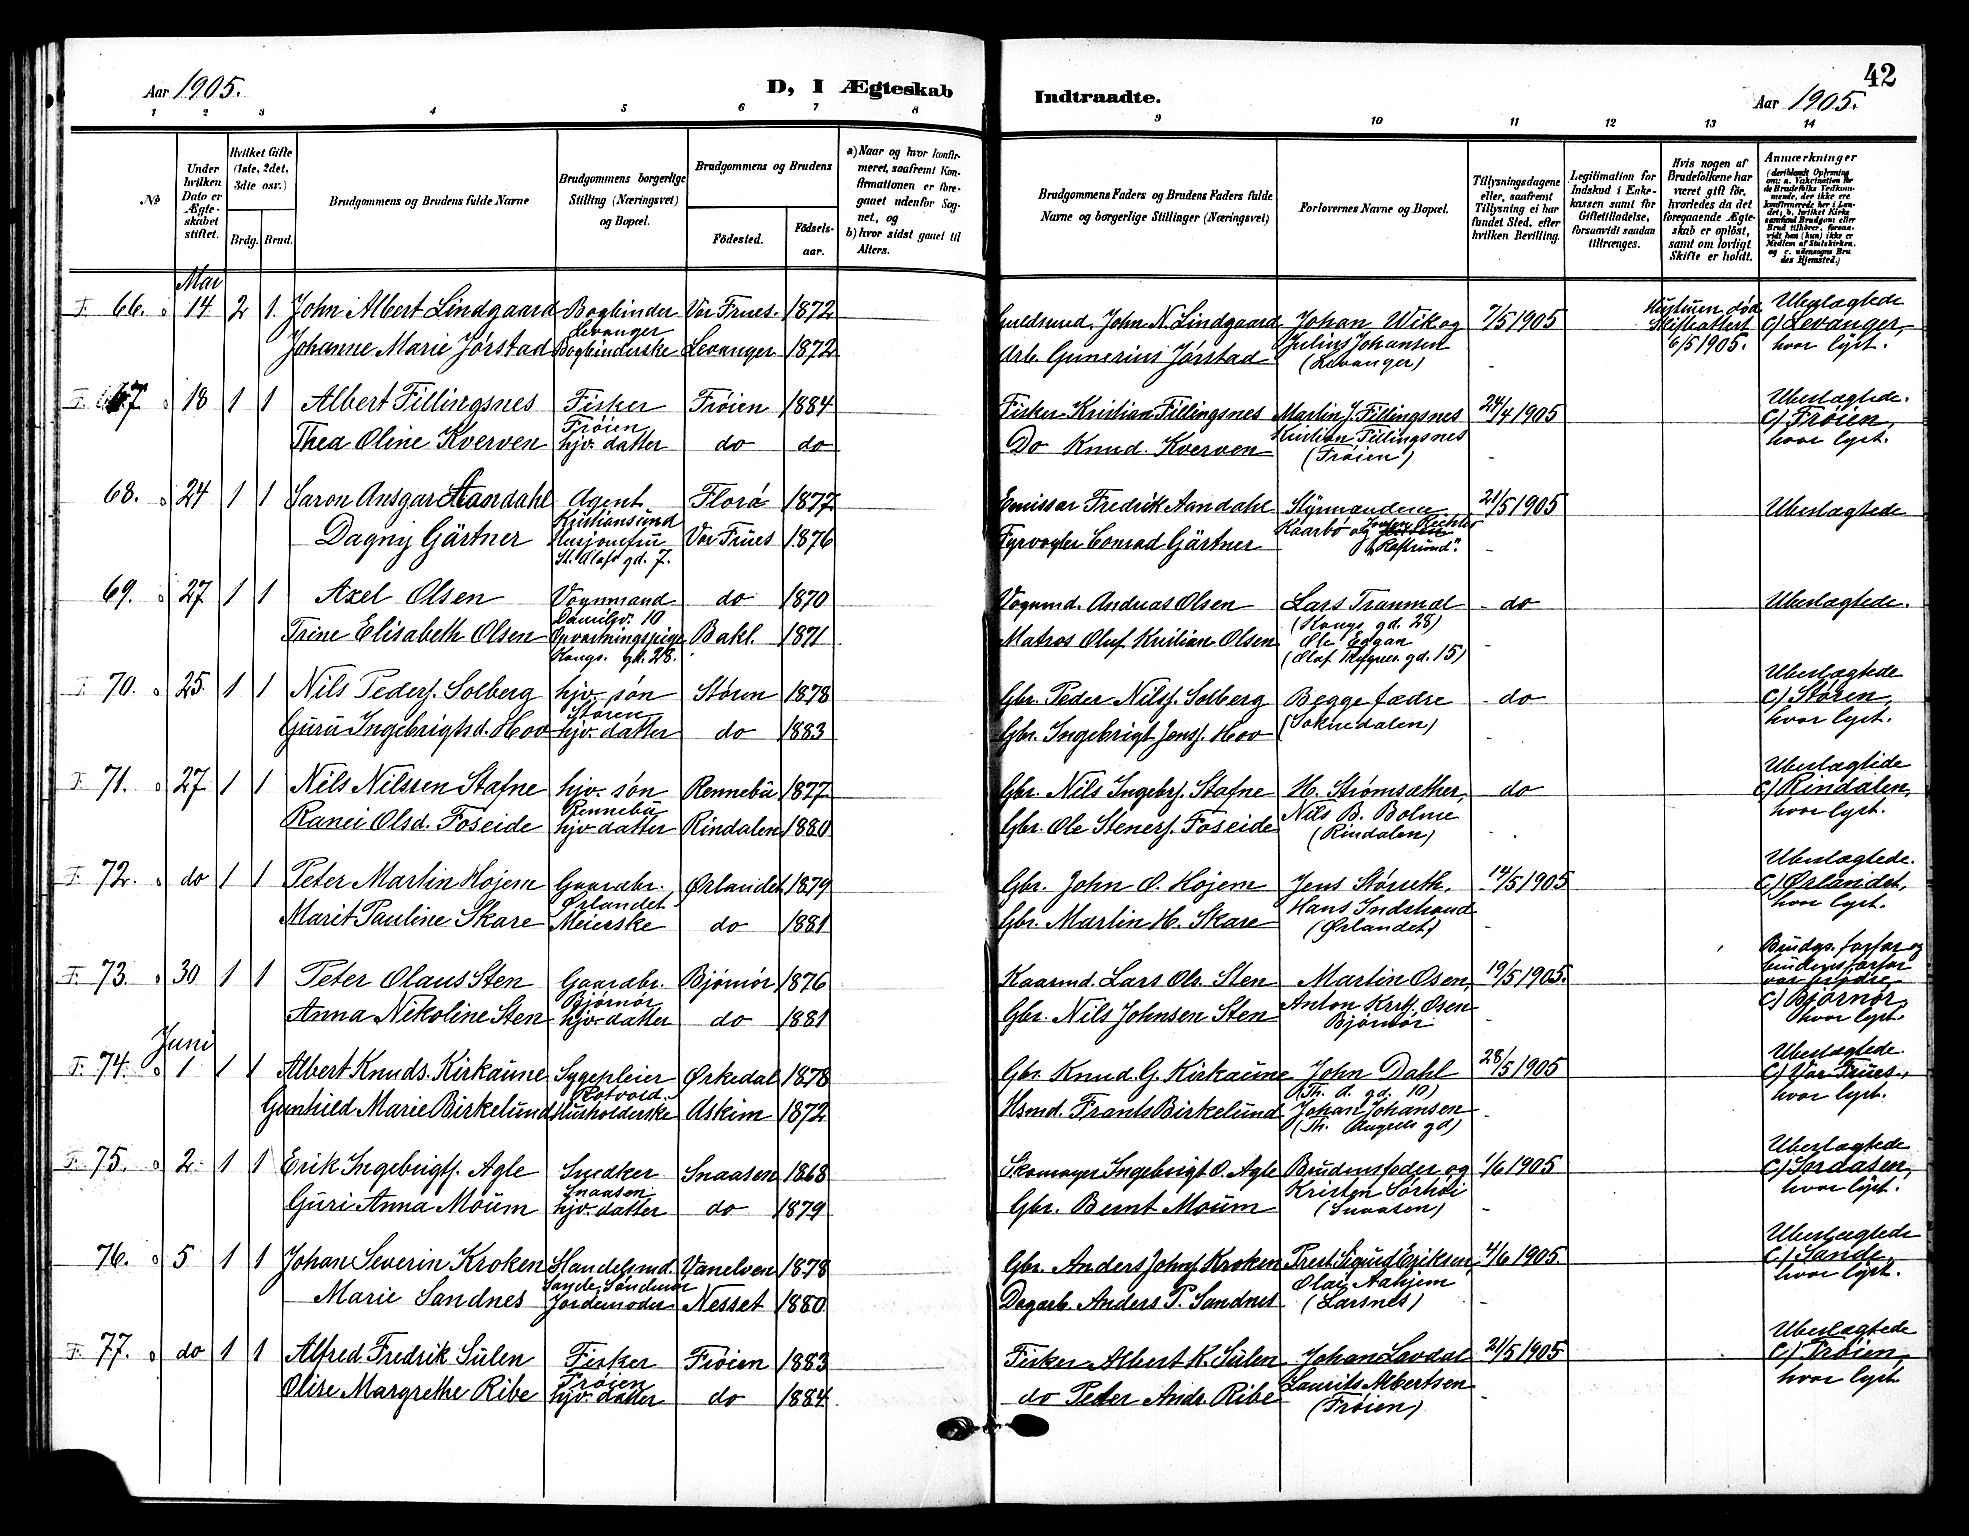 Aar 1905. D, I Ægteskab Indtraadte. Aar 1905. 42
1 2 3 4 5 6 7 8 9 10 11 12 13 14
No
Under hvilken Dato er Ægteskabet stiftet.
Hvilket Gifte (1ste, 2det, 3die osv.)
Brdg. Brud.
Brudgommens og Brudens fulde Navne
Brudgommens borgerlige Stilling (Næringsvei) og Bopæl.
Brudgommens og Brudens
Födested. Födsels-aar.
a) Naar og hvor konfirmeret, saafremt Konfirmationen er foregaaet udenfor Sognet, og
b) hvor sidst gaaet til Alters.
Brudgommens Faders og Brudens Faders fulde Navne og borgerlige Stillinger (Næringsvei)
Forlovernes Navne og Bopæl.
Tillysningsdagene eller, saafremt Tillysning ei har fundet Sted, efter hvilken Bevilling.
Legitimation for Indskud i Enkekassen samt for Giftetilladelse, forsaavidt saadan tiltrænges.
Hvis nogen af Brudefolkene har været gift før, hvorledes da det foregaaende Ægteskab er oplöst, samt om lovligt Skifte er holdt.
Anmærkninger
Mai
F. 66. 14 2 1. John Albert Lindgaard Bogbinder Vor Frues 1872 Guldsmd. John N. Lindgaard Johan Wik og 7/5 1905 Hustruen død Ubeslægtede
Levanger Julius Johansen Skifteattest C) Levanger,
Johanne Marie Jørstad Bogbinderske Levanger 1872 Arb. Gunerius Jørstad (Levanger) - 6/5 1905. hvor lyst.
F. 67 18 1 1 Albert Fillingsnes Fisker Frøien 1884 Fisker Kristian Fillingsnes Martin J. Fillingsnes 24/4 1905 Ubeslægtede.
Frøien Kristian Fillingsnes C) Frøien,
Thea Oline Kverven hjv. datter do do Do Knud Kverven (Frøien) - hvor lyst.
68. 24 1 1 Saron Ansgar Aandahl Agent Florø 1877 Emissær Fredrik Aandahl Styrmandene 21/5 1905 Ubeslægtede
Kristiansund Kaarbø og
Dagny Gärtner Vor Frues 1876 Fyrvogter Conrad Gärtner -
St. Olafs gd. 7.
69. 27 1 1 Axel Olsen Vognmand do 1870 Vognmd. Andreas Olsen Lars Tranmæl do Ubeslægtede.
10 (Kongs gd. 28)
Trine Elisabeth Olsen Opvartningspige Bakl. 1871 Matros Oluf Kristian Olsen Ole Eggan -
Kongs. gd. 28. (Olaf Trygves. gd. 15)
F. 70. 25. 1 1 Nils Peders. Solberg hjv. søn Støren 1878 Gbr. Peder Nils. Solberg Begge fædre do Ubeslægtede
Støren (Soknedalen) C) Støren,
Guru Ingebrigtsd. Hov hjv. datter do 1883 Gbr. Ingebrigt Jens. Hov - hvor lyst.
F. 71. 27 1 1 Nils Nilssen Stafne hjv. søn Rennebu 1877. Gbr. Nils Ingebr. Stafne H. Strømsæther, do Ubeslægtede
Rennebu Nils B. Bolme C) Rindalen,
Ranei Olsd. Foseide hjv. datter Rindalen 1880 Gbr. Ole Steners. Foseide (Rindalen) - hvor lyst.
F. 72. do 1 1 Peter Martin Hojem Gaardbr. Ørlandet 1879 Gbr. John O. Hojem Jens Størseth, 14/5 1905 Ubeslægtede.
Ørlandet Hans Indstrand C) Ørlandet,
Marit Pauline Skare Meierske do 1881 Gbr. Martin H. Skare (Ørlandet) - hvor lyst.
F. 73. 30 1 1 Peter Olaus Sten Gaardbr. Bjørnør 1876 Kaarmd. Lars Ols. Sten Martin Osen 19/5 1905. Brudgs. farfar og brudens farfar var brødre
Bjørnør Anton Osen C) Bjørnør,
Anna Nikoline Sten hjv. datter do 1881 Gbr. Nils Johnsen Sten Bjørnør - hvor lyst.
Juni
F. 74. 1 1 1 Albert Knuds. Kirkaune Sygepleier Ørkedal 1878 Gbr. Knud G. Kirkaune John Dahl 28/5 1905 Ubeslægtede.
Rotvold. (Th. A. gd. 10) C) Vor Frues,
Gunhild Marie Birkelund Husholderske Askim 1872 Hsmd. Frants Birkelund Johan Johansen - hvor lyst.
(Th. Angells gd)
F. 75. 2. 1 1 Erik Ingebrigts. Agle Snedker Snaasen 1868 Skomager Ingebrigt O. Agle Brudens fader og 1/6 1905 Ubeslægtede
Snaasen Kristen Sørhøi C) Snaasen,
Guri Anna Moum hjv. datter do 1879 Gbr. Bernt Moum (Snaasen) - hvor lyst.
76. 5 1 1 Johan Severin Kroken Handelsmd. Vanelven 1878 Gbr. Anders Johns. Kroken Prest Sigurd Eriksen, 4/6 1905. Ubeslægtede
Sande, Søndmør Olai Aahjem C) Sande,
Marie Sandnes Jordemoder Nesset 1880 Dagarb. Anders P. Sandnes (Larsnes) - hvor lyst.
F. 77. do 1 1 Alfred Fredrik Sulen Fisker Frøien 1883 Fisker Albert K. Sulen Johan Lovdal 21/5 1905 Ubeslægtede
Frøien Laurits Albertsen C) Frøien,
Olise Margrethe Ribe hjv. datter do 1884 do Peter Andr. Ribe (Frøien) - hvor lyst.